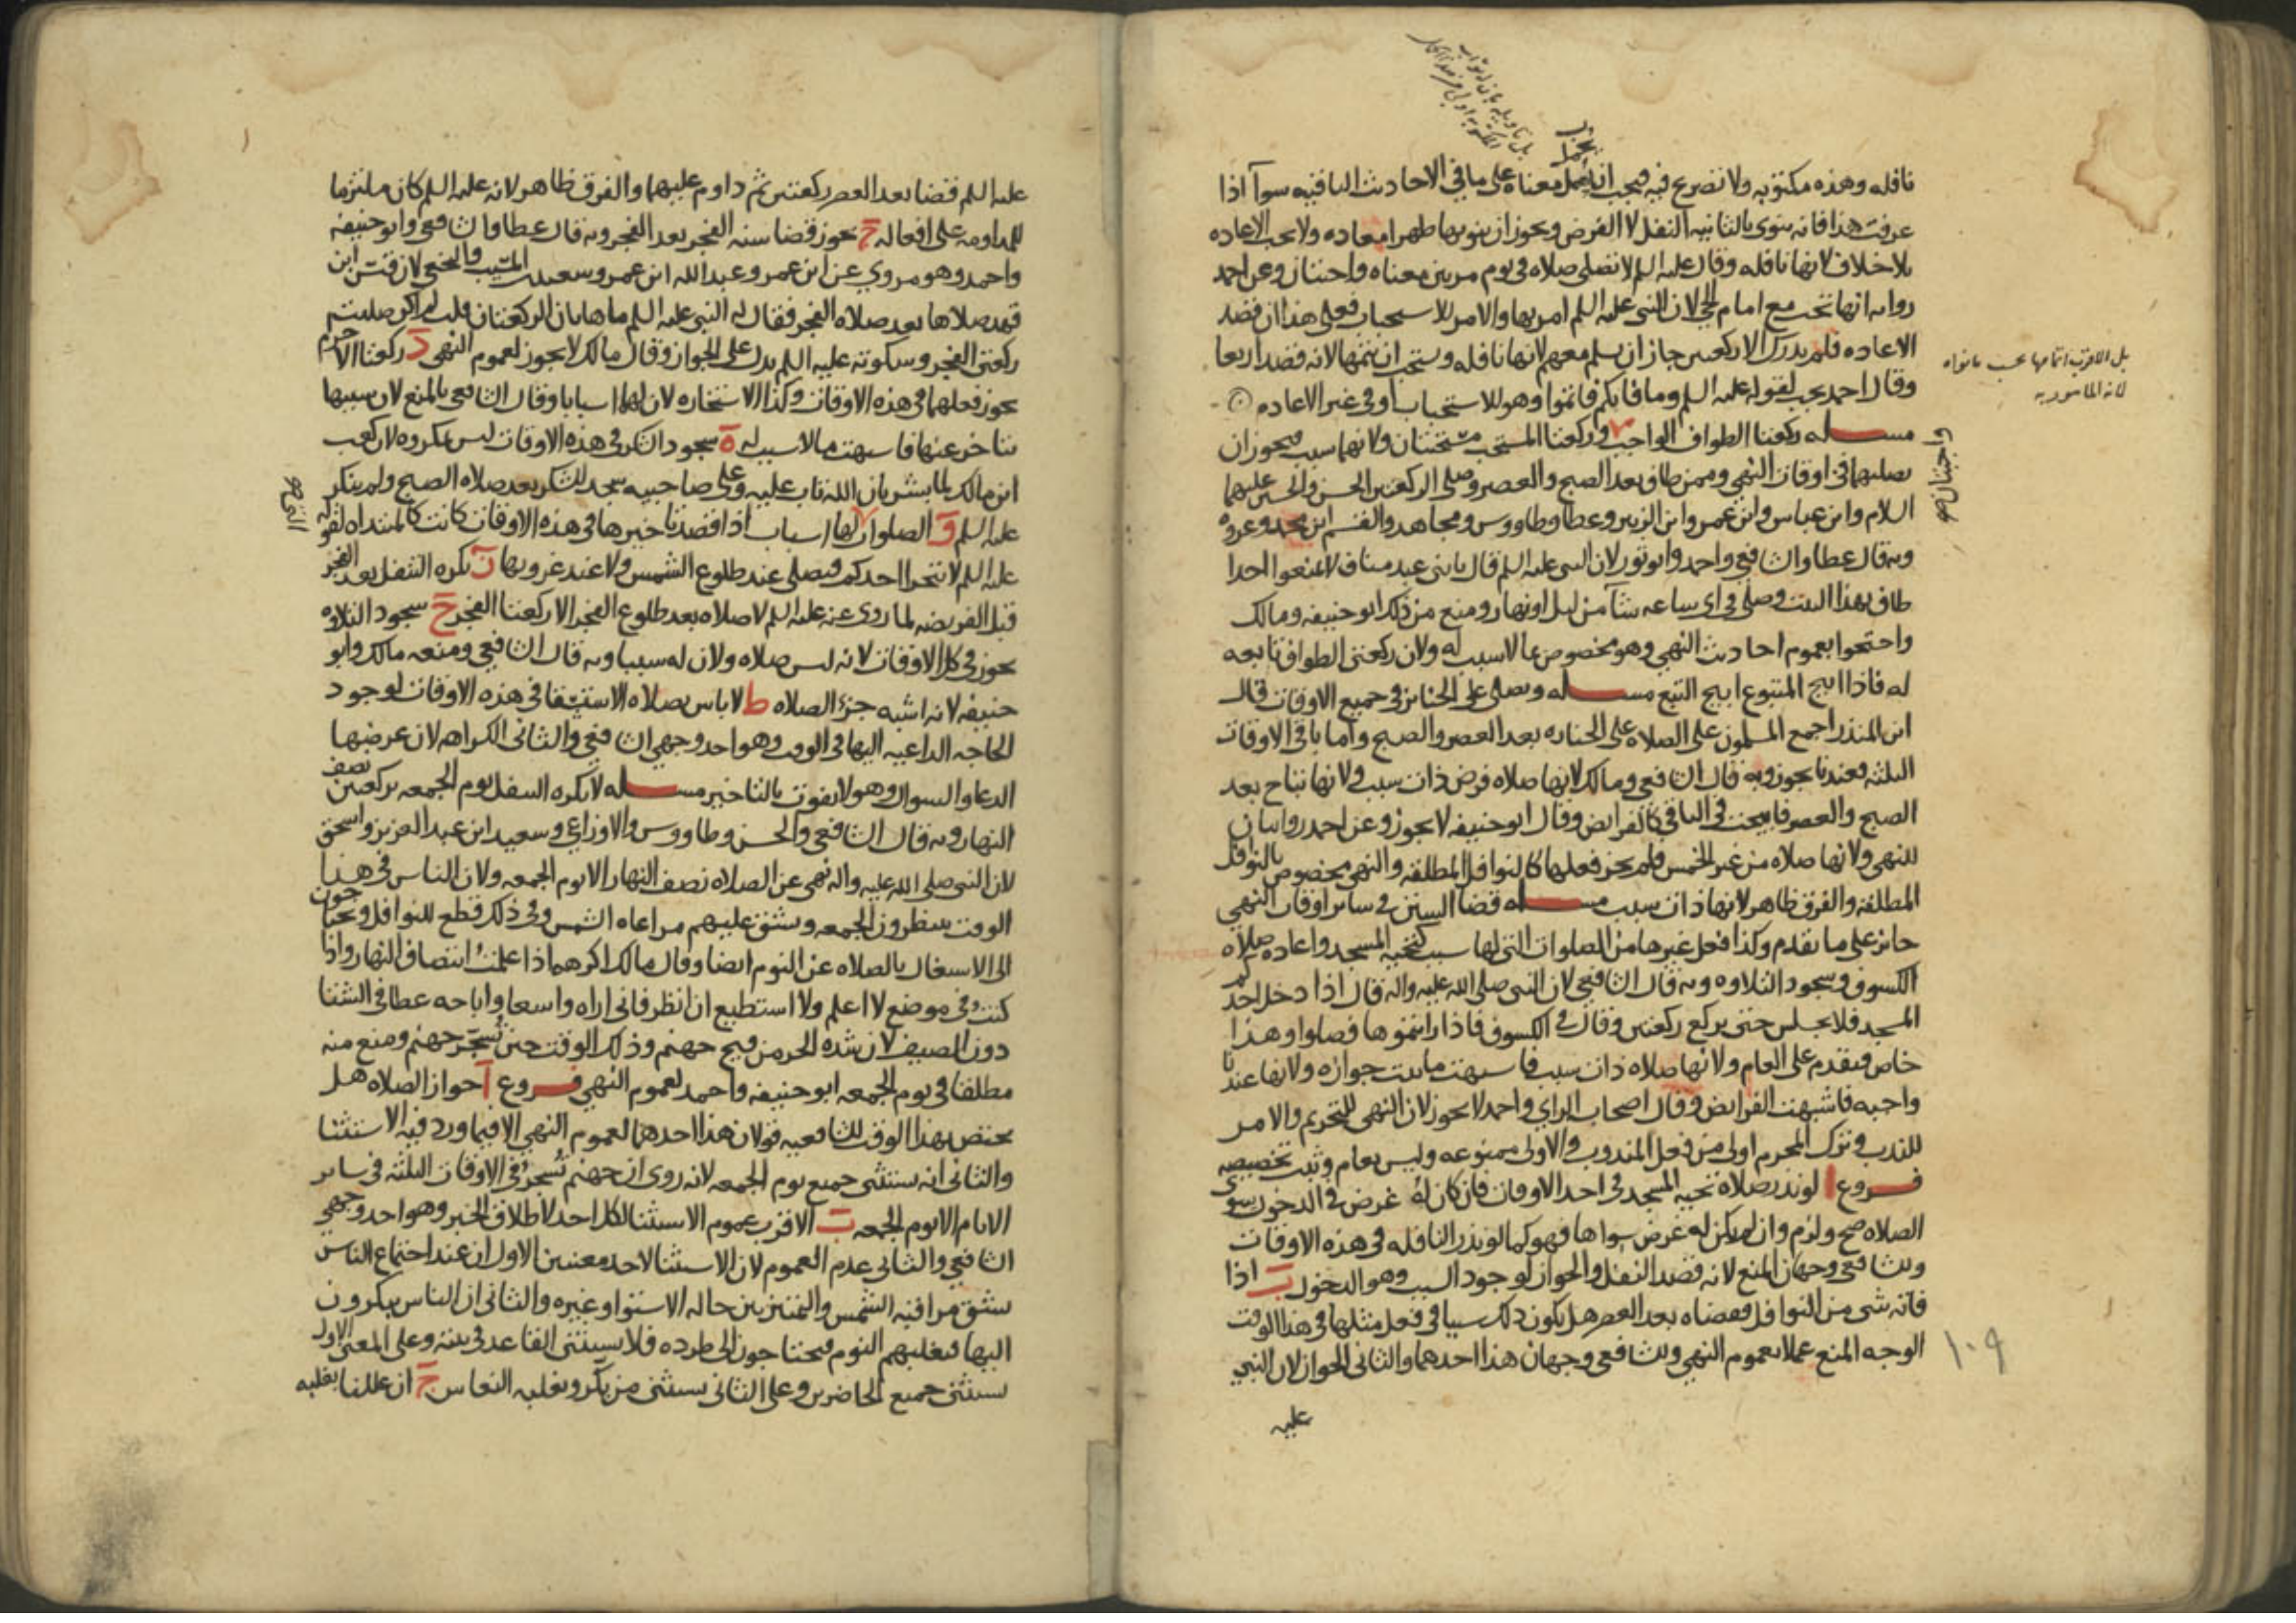 بل تاويله بان له ثواب
المكتوبه اولى من هذا الحمل
يجز
نافله وهذه مكتوبه ولا تصريح فيه فيجب ان يحمل معناه على ما في الاحاديث الباقيه سوآ اذا
عرفت هذا فانه ينوى بالثانيه النفل لا الفرض ويجوز ان ينويها ظهرا معاده ولا يجب الاعاده
بلا خلاف لانها نافله وقال عليه السلم لا تصلى صلاه فى يوم مرتين معناه واجبتان وعن احمد
روايه انها تجب مع امام الحي لان النبى عليه السلم امر بها والامر للاستحباب فعلى هذا ان قصد
الاعاده فلم يدرك الا ركعتين جاز ان يسلم معهم لانها نافله ويستحب ان يتمها لانه قصد اربعا
وقال احمد يجب لقوله عليه السلم وما فاتكم فاتموا وهو للاستحباب او فى غير الاعاده
بل الاقرب اتمامها بحسب ما نواه
لانه المامور به
مسله ركعتا الطواف الواجب وركعتا المستحب مستحبتان ولانهما سبب فيجوز ان
واجبتان صح
يصليهما فى اوقات النهى وممن طاف بعد الصبح والعصر وصلى الركعتين الحسن والحسين عليهما
السلام وابن عباس وابن عمر وابن الزبير وعطا وطاووس ومجاهد والقسم ابن محمد وعروه
وبه قال عطا والشافعى واحمد وابو ثور لان النبى عليه السلم قال يا بنى عبد مناف لا تمنعوا احدا
طاف بهذا البيت وصلى فى اى ساعه شآ من ليل او نهار ومنع من ذلك ابو حنيفه ومالك
واحتجوا بعموم احاديث النهى وهو مخصوص بما لا سبب له ولان ركعتى الطواف تابعه
له فاذا ابيح المتبوع ابيح التبع مسله ويصلى على الجنائز فى جميع الاوقات قال
ابن المنذر اجمع المسلمون على الصلاه على الجنازه بعد العصر والصبح واما باقى الاوقات
الثلثه فعندنا يجوز وبه قال الشافعى ومالك لانها صلاه فرض ذات سبب ولانها تباح بعد
الصبح والعصر فابيحت فى الباقى كالفرايض وقال ابو حنيفه لا يجوز وعن احمد روايتان
للنهى ولانها صلاه من غير الخمس فلم يجز فعلها كالنوافل المطلقه والنهى مخصوص بالنوافل
المطلقه والفرق ظاهر لانها ذات سبب مسله قضا السنن فى ساير اوقات النهى
جائز على ما تقدم وكذا فعل غيرها من الصلوات التى لها سبب كتحيه المسجد واعاده صلاه
الكسوف وسجود التلاوه وبه قال الشافعى لان النبى صلى الله عليه واله قال اذا دخل احدكم
المسجد فلا يجلس حتى يركع ركعتين وقال فى الكسوف فاذا رايتموها فصلوا وهذا
خاص فيقدم على العام ولانها صلاه ذات سبب فاشبهت ما ثبت جوازه ولانها عندنا
واجبه فاشبهت الفرايض وقال اصحاب الراي واحمد لا يجوز لان النهى للتحريم والامر
للندب وترك المحرم اولى من فعل المندوب والاولى ممنوعه وليس بعام وثبت تخصيصه
فروع ا لو نذر صلاه تحيه المسجد فى احد الاوقات فان كان له غرض فى الدخول سوى
الصلاه صح ولزم وان لم يكن له غرض سواها فهو كما لو نذر النافله فى هذه الاوقات
وللشافعى وجهان المنع لانه قصد النفل والجواز لوجود السبب وهو الدخول ب اذا
فاته شى من النوافل فقضاه بعد العصر هل يكون ذلك سببا فى فعل مثلها فى هذا الوقت
الوجه المنع عملا بعموم النهى وللشافعى وجهان هذا احدهما والثانى الجواز لان النبى
١٠٩
عليه
عليه السلم قضا بعد العصر ركعتين ثم داوم عليهما والفرق ظاهر لانه عليه السلم كان ملتزما
للمداومه على افعاله ج يجوز قضا سنه الفجر بعد الفجر وبه قال عطا والشافعى وابو حنيفه
واحمد وهو مروي عن ابن عمر وعبد الله ابن عمر وسعيد بن المسيب والنخعى لان قيس ابن
قهد صلاها بعد صلاه الفجر فقال له النبى عليه السلم ما هاتان الركعتان قلت لم اكن صليت
ركعتى الفجر وسكوته عليه السلم يدل على الجواز وقال مالك لا يجوز لعموم النهى د ركعتا الاحرام
يجوز فعلهما فى هذه الاوقات وكذا الاستخاره لان لهما اسبابا وقال الشافعى بالمنع لان سببها
يتاخر عنها فاشبهت ما لا سبب له ه سجود الشكر فى هذه الاوقات ليس بمكروه لان كعب
ابن مالك لما بشر بان الله تاب عليه وعلى صاحبيه سجد للشكر بعد صلاه الصبح ولم ينكر
عليه السلم و الصلوات لها اسباب اذا قصد تاخيرها فى هذه الاوقات كانت كالمبتداه لقوله
عليه السلم لا يتحرا احدكم فيصلى عند طلوع الشمس ولا عند غروبها ز يكره التنفل بعد الفجر
قبل الفريضه لما روى عنه عليه السلم لا صلاه بعد طلوع الفجر الا ركعتا الفجر ح سجود التلاوه
يجوز فى كل الاوقات لانه ليس صلاه ولان له سببا وبه قال الشافعى ومنعه مالك وابو
حنيفه لانه اشبه جزء الصلاه ط لا باس بصلاه الاستسقا فى هذه الاوقات لوجود
الحاجه الداعيه اليها فى الوقت وهو احد وجهي الشافعى والثانى الكراهه لان غرضها
الدعا والسوال وهو لا يفوت بالتاخير مسله لا يكره التنفل يوم الجمعه بركعتين نصف
النهار وبه قال الشافعى والحسن وطاووس والاوزاعى وسعيد ابن عبد العزيز واسحق
لان النبى صلى الله عليه واله نهى عن الصلاه نصف النهار الا يوم الجمعه ولان الناس فى هذا
الوقت ينتظرون الجمعه ويشق عليهم مراعاه الشمس وفى ذلك قطع للنوافل ويحتاجون
الى الاشتغال بالصلاه عن النوم ايضا وقال مالك اكرهه اذا علمت انتصاف النهار واذا
كنت فى موضع لا اعلم ولا استطيع ان انظر فانى اراه واسعا واباحه عطا فى الشتا
دون الصيف لان شده الحر من فيح جهنم وذلك الوقت حين تسجر جهنم ومنع منه
مطلقا فى يوم الجمعه ابو حنيفه واحمد لعموم النهى فروع ا جواز الصلاه هل
يختص بهذا الوقت للشافعيه قولان هذا احدهما لعموم النهى الا فيما ورد فيه الاستثنا
والثانى انه يستثنى جميع يوم الجمعه لانه روى ان جهنم تسجر فى الاوقات الثلثه فى ساير
الايام الا يوم الجمعه ب الاقرب عموم الاستثنا لكل احد لاطلاق الخبر وهو احد وجهي
الشافعى والثانى عدم العموم لان الاستثنا لاحد معنيين الاول ان عند اجتماع الناس
يشق مراقبه الشمس والتمييز بين حاله الاستوا وغيره والثانى ان الناس يبكرون
اليها فيغلبهم النوم فيحتاجون الى طرده فلا يستثنى القاعد فى بيته وعلى المعنى الاول
يستثنى جميع الحاضرين وعلى الثانى يستثنى من يبكر ويغلبه النعاس ج ان عللنا بغلبه